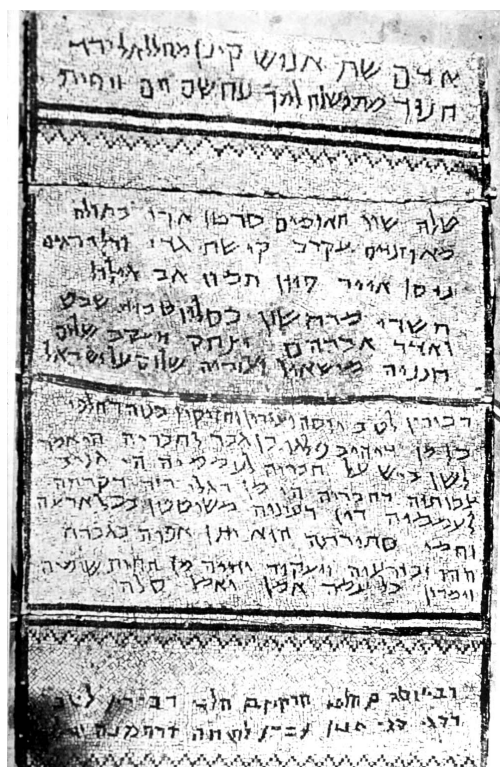 אדם שת אנוש קינן מהללאל וירד
חנוך מתושלח למך נוח שם חם ויפת
טלה שור תאומים סרטן ארי בתולה
מאוזניים עקרב קשת גדי ודלי דגים
ניסן אייר סיון תמוז אב אילול
תשרי מרחשון כסליו טבית שבט
ואדר אברהם יצחק יעקב שלום
חנניה מישאיל ועזריה שלום על ישראל
דכירין לטב יוסה ועזרון וחזיקיו בנוה דחלפי
כל מן דיהיב פלגו בן גבר לחבריה הי אמר
לשן ביש על חבריה לעממיה הי גניב
צבותיה דחבריה הי מן דגלי רזה דקרתה
לעממיה דין דעינוה משוטטן בכל ארעה
וחמי סתירתה הוא יתן אפוה בגברה
ההו ובזרעיה ויעקור יתיה מן תחות שומיה
וימרון כל עמה אמן ואמן סלה
רבי יוסה בן חלפי חזקיו בן חלפי דכירין לטב
דסגי סגי הנון עבדו לשמה דרחמנה שלום